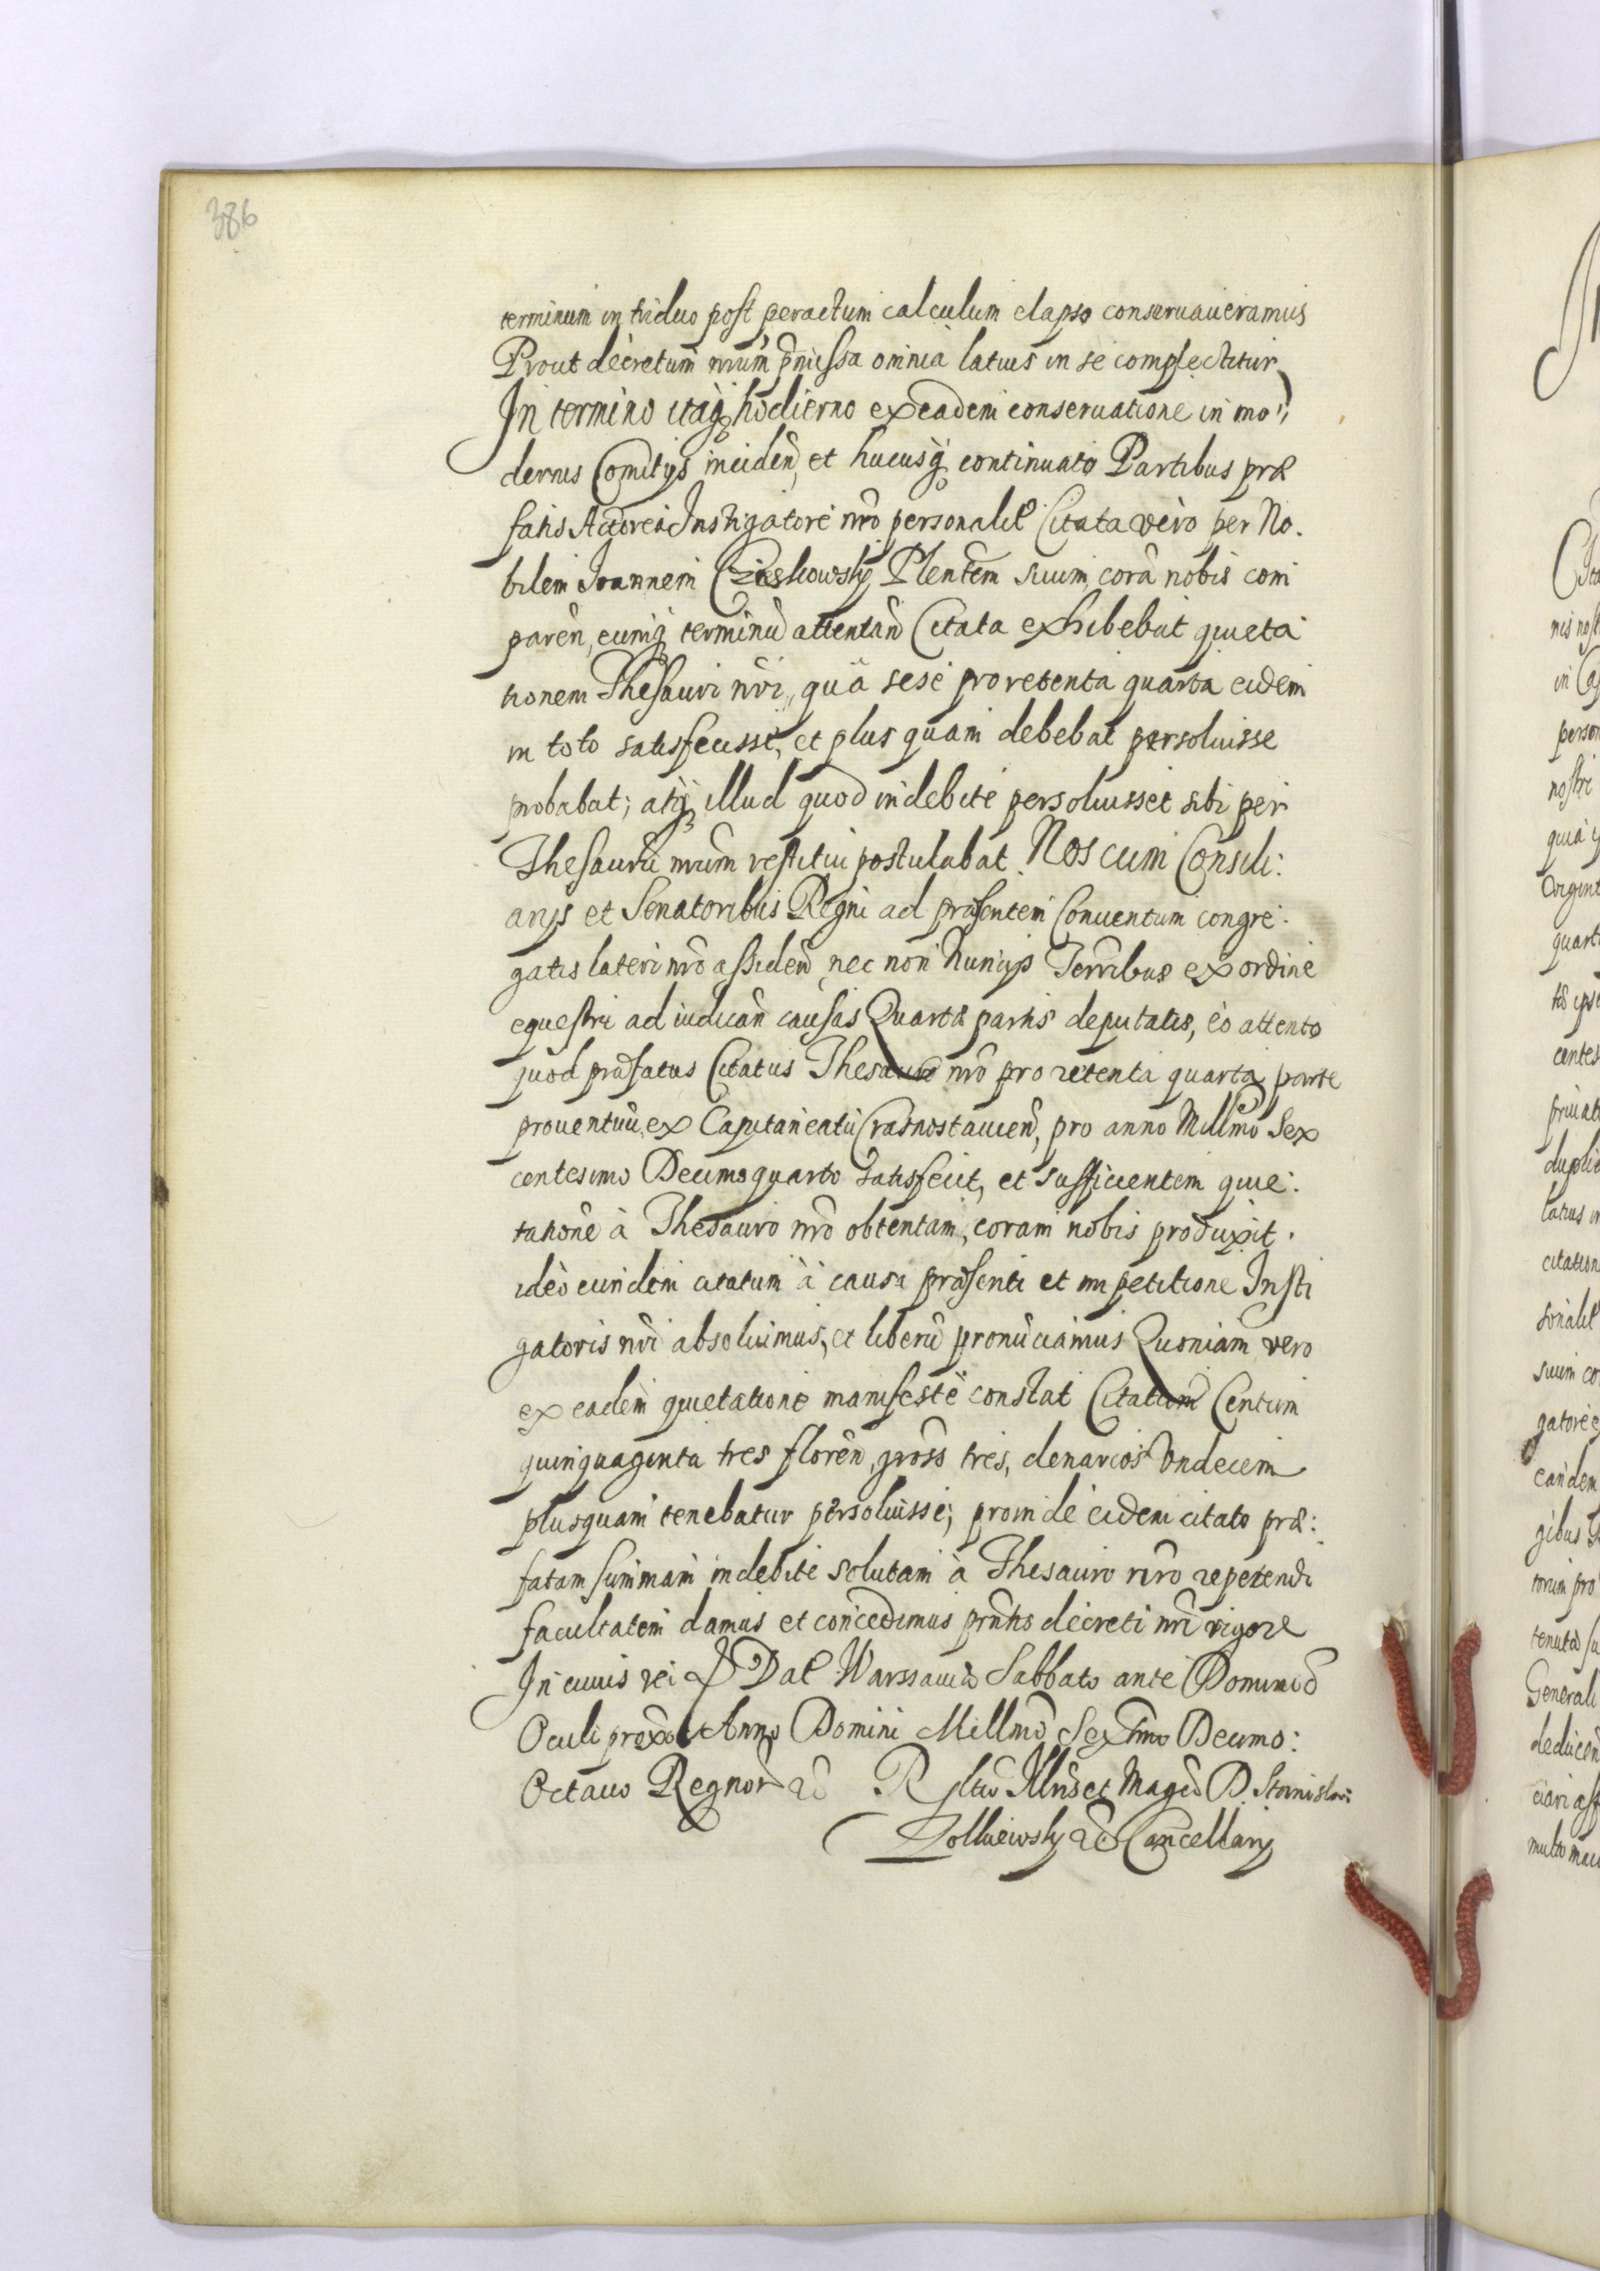 386
terminum in triduo post peractum calculum elapso conseruaueramus
Prout decretum nrũm p̃missa omnia latius in se complectitur
In termino itaq₃ hodierno ex eadem conseruatione in mo,,
dernis Comitijs inciden̄, et hucusq₃ continuato Partibus præ
fatis Actorea Instigatore nr̃o personalr̃ Citata vèro per No.
bilem Joannem Czieskowsky Plenc̃tem suum corã nobis com
paren̄, eumq₃ terminũ attentan̄ Citata exhibebat quieta
tionem Thesauri nr̃i, quã sese pro retenta quarta eidem
in toto satisfecisse, et plus quam debebat persoluisse
probabat; atq₃ illud quod indebite persoluisset sibi per
Thesaurũ nrũm restitui postulabat. Nos cum Consili:
arijs et Senatoribus Regni ad præsentem Conuentum congre:
gatis lateri nr̃o assiden̄ nec non Nuncijs Terr̃ibus ex ordine
equestri ad iudican̄ causas Quartæ partis deputatis, eo attento
quod præfatus Citatus Thesauro nr̃o pro retenta quarta parte
prouentuũ ex Capitaneatu Crasnostauien̄, pro anno Millm̃o Sex
centesimo Decimoquarto satisfecit, et sufficientem quie:
tationẽ à Thesauro nr̃o obtentam, coram nobis produxit.
ideò eundem citatum à causa præsenti et impetitione Insti
gatoris nr̃i absoluimus, et liberũ pronũciamus Quoniam vero
ex eadem quietatione manifestè constat Citatum Centum
quinquaginta tres floren̄, gross̃ tres, denarios Vndecim
plusquam tenebatur persoluisse; proinde eidem citato præ:
fatam summam indebite solutam à Thesauro nr̃o repetendi
facultatem damus et concedimus pr̃ntis decreti nr̃i vigore
In cuius rei Dat Warssauiæ Sabbato ante Dominicã
Oculi proxo Anno Domini Millm̃o Sextm̃o Decimo:
Octauo Regnor Rltio Illris et Magci D. Stanislai
Zolkiewsky Cancellarij